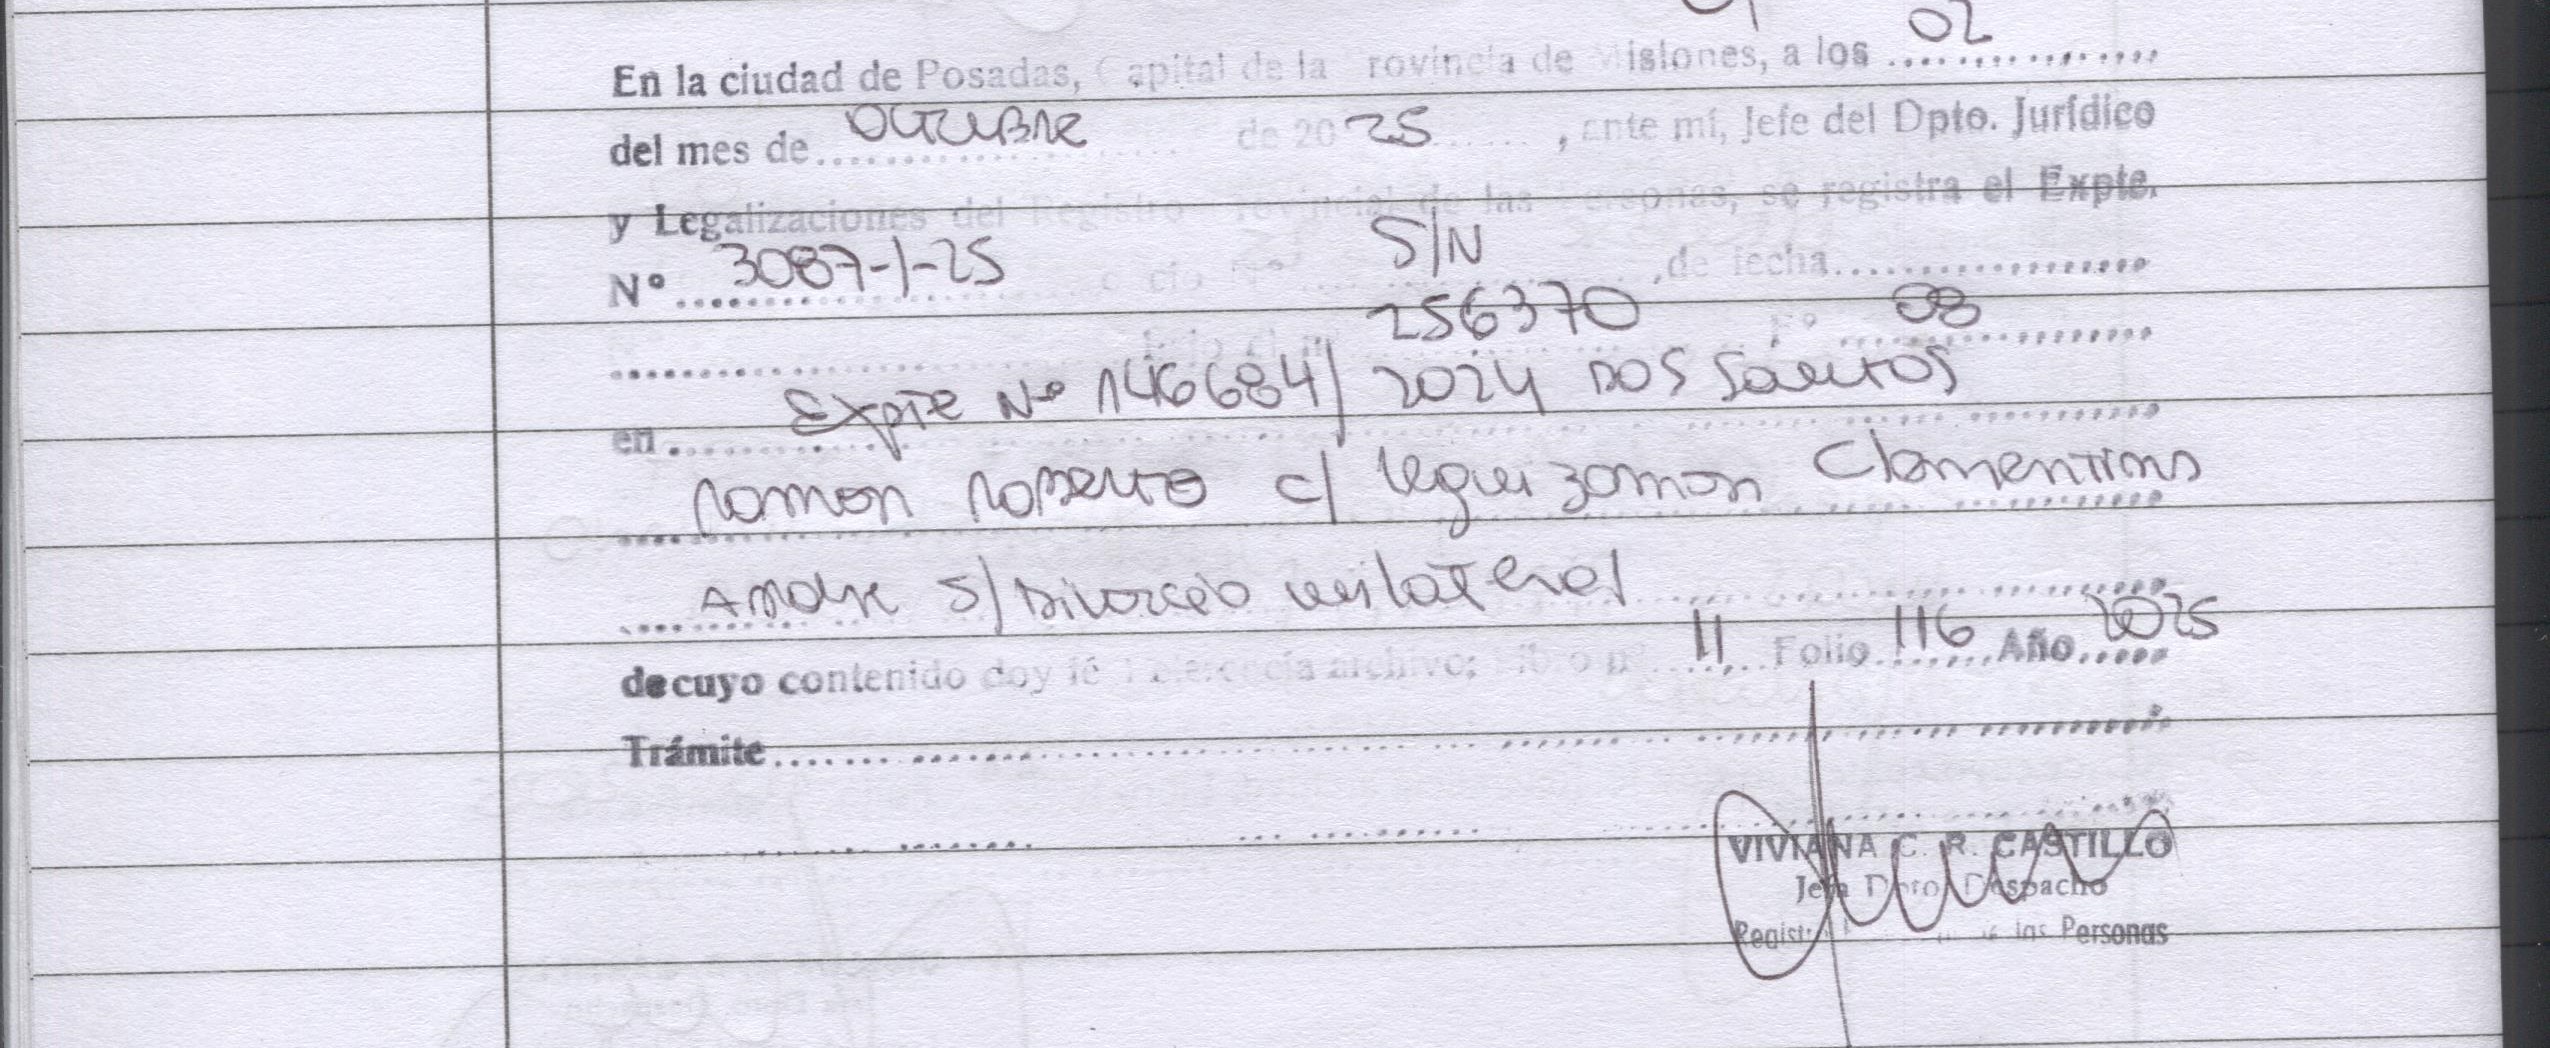 En la ciudad de Posadas, Capital de la Provincia de Misiones, a los 02
del mes de OCTUBRE de 2025, ante mí, Jefe del Dpto. Jurídico
y Legalizaciones del Registro Provincial de las Personas, se registra el Expte.
Nº 3087-1-25 S/N, de fecha
256370 Fº 08
en Expte Nº 146684/2024 DOS Santos
Ramon Roberto c/ Leguizamon Clementina
s/ Divorcio unilateral
de cuyo contenido doy fé Referencia archivo; Libro nº 11 Folio 116 Año 2025
Trámite
VIVIANA C. R. CASTILLO
Jefa Dpto. Despacho
las Personas